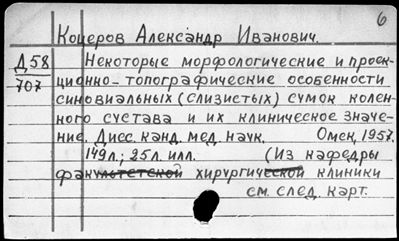 6
Коцеров Александр Иванович.
Д58
707
Некоторые морфологические и проек-
ционно-топографические особенности
синовиальных (слизистых) сумок колен-
ного сустава и их клиническое значе-
ние. Дисс. канд. мед. наук. Омск, 1957.
149л.; 25л. илл. (Из кафедры
факультетской хирургической клиники
см. след. карт.